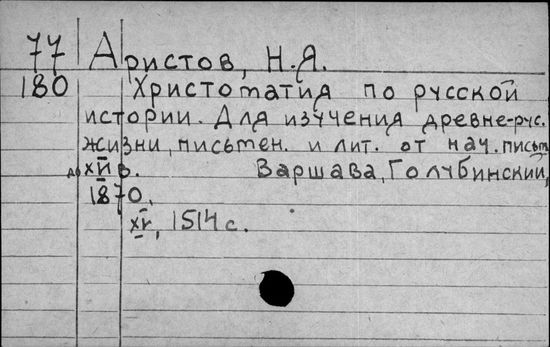 77 Аристов, Н.Я.
180 Христоматия по русской
истории. Для изучения древне-рус.
жизни, письмен. и лит. от нач. письм.
до XVI в. Варшава, Голубинский,
1870.
XV, 1514 с.